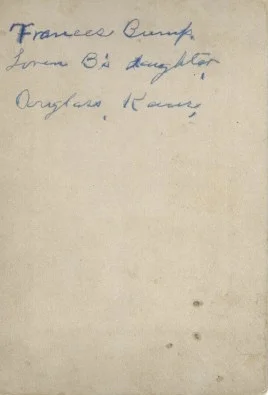 Frances Bump
Loren B's daughter
Douglass, Kans,